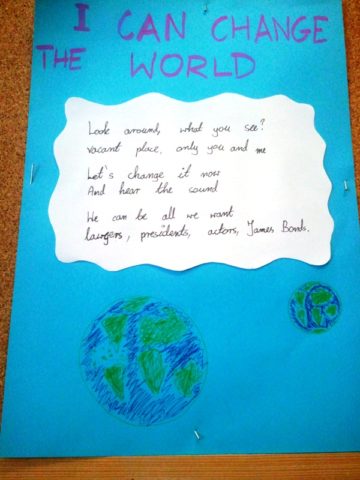 I CAN CHANGE
THE WORLD
Look around, what you see?
Vacant place, only you and me
Let's change it now
And hear the sound
We can be all we want
lawyers, presidents, actors, James Bonds.